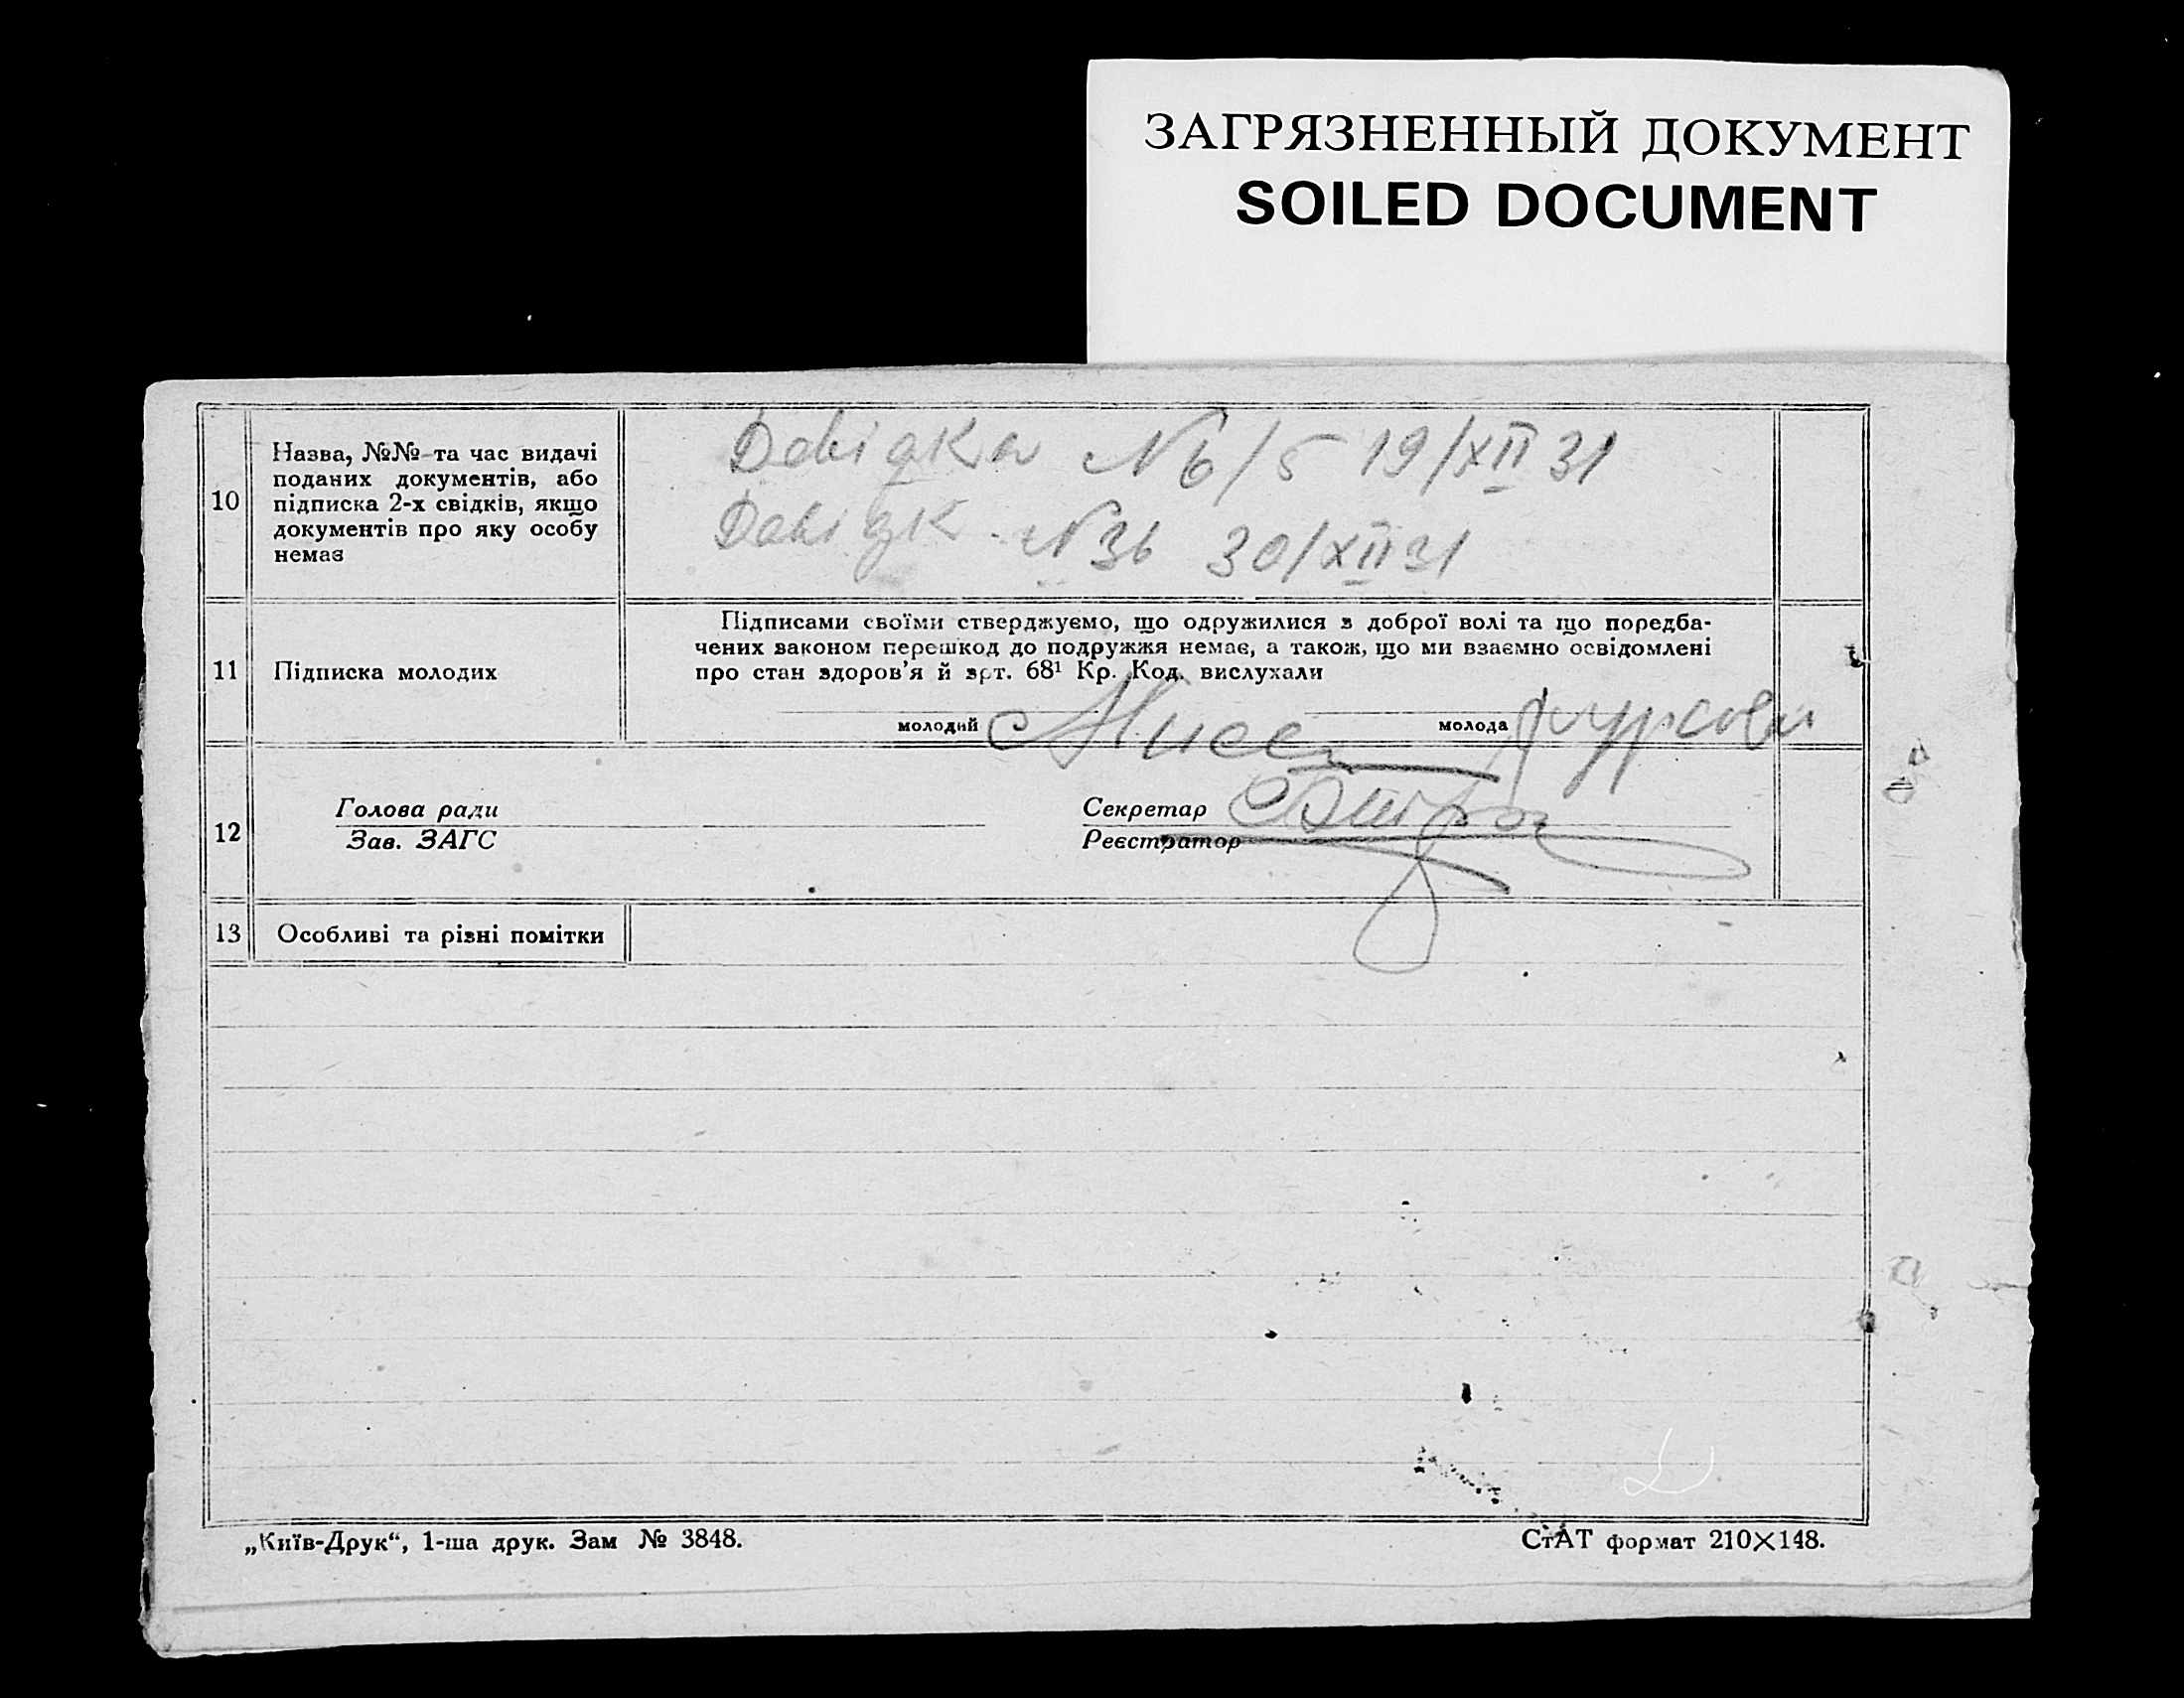 ЗАГРЯЗНЕННЫЙ ДОКУМЕНТ
SOILED DOCUMENT
10
Назва, №№ та час видачі
поданих документів, або
підписка 2-х свідків, якщо
документів про яку особу
немає
Довідка N 6/5 19/XII 31
Довідк N 36 30/XII 31
11
Підписка молодих
Підписами своїми стверджуємо, що одружилися з доброї волі та що поредба-
чених законом перешкод до подружжя немає, а також, що ми взаємно освідомлені
про стан здоров’я й арт. 68¹ Кр. Код. вислухали
молодий
молода
12
Голова ради
Зав. ЗАГС
Секретар
Реєстратор
13
Особливі та різні помітки
„Київ-Друк“, 1-ша друк. Зам № 3848.
СтАТ формат 210×148.